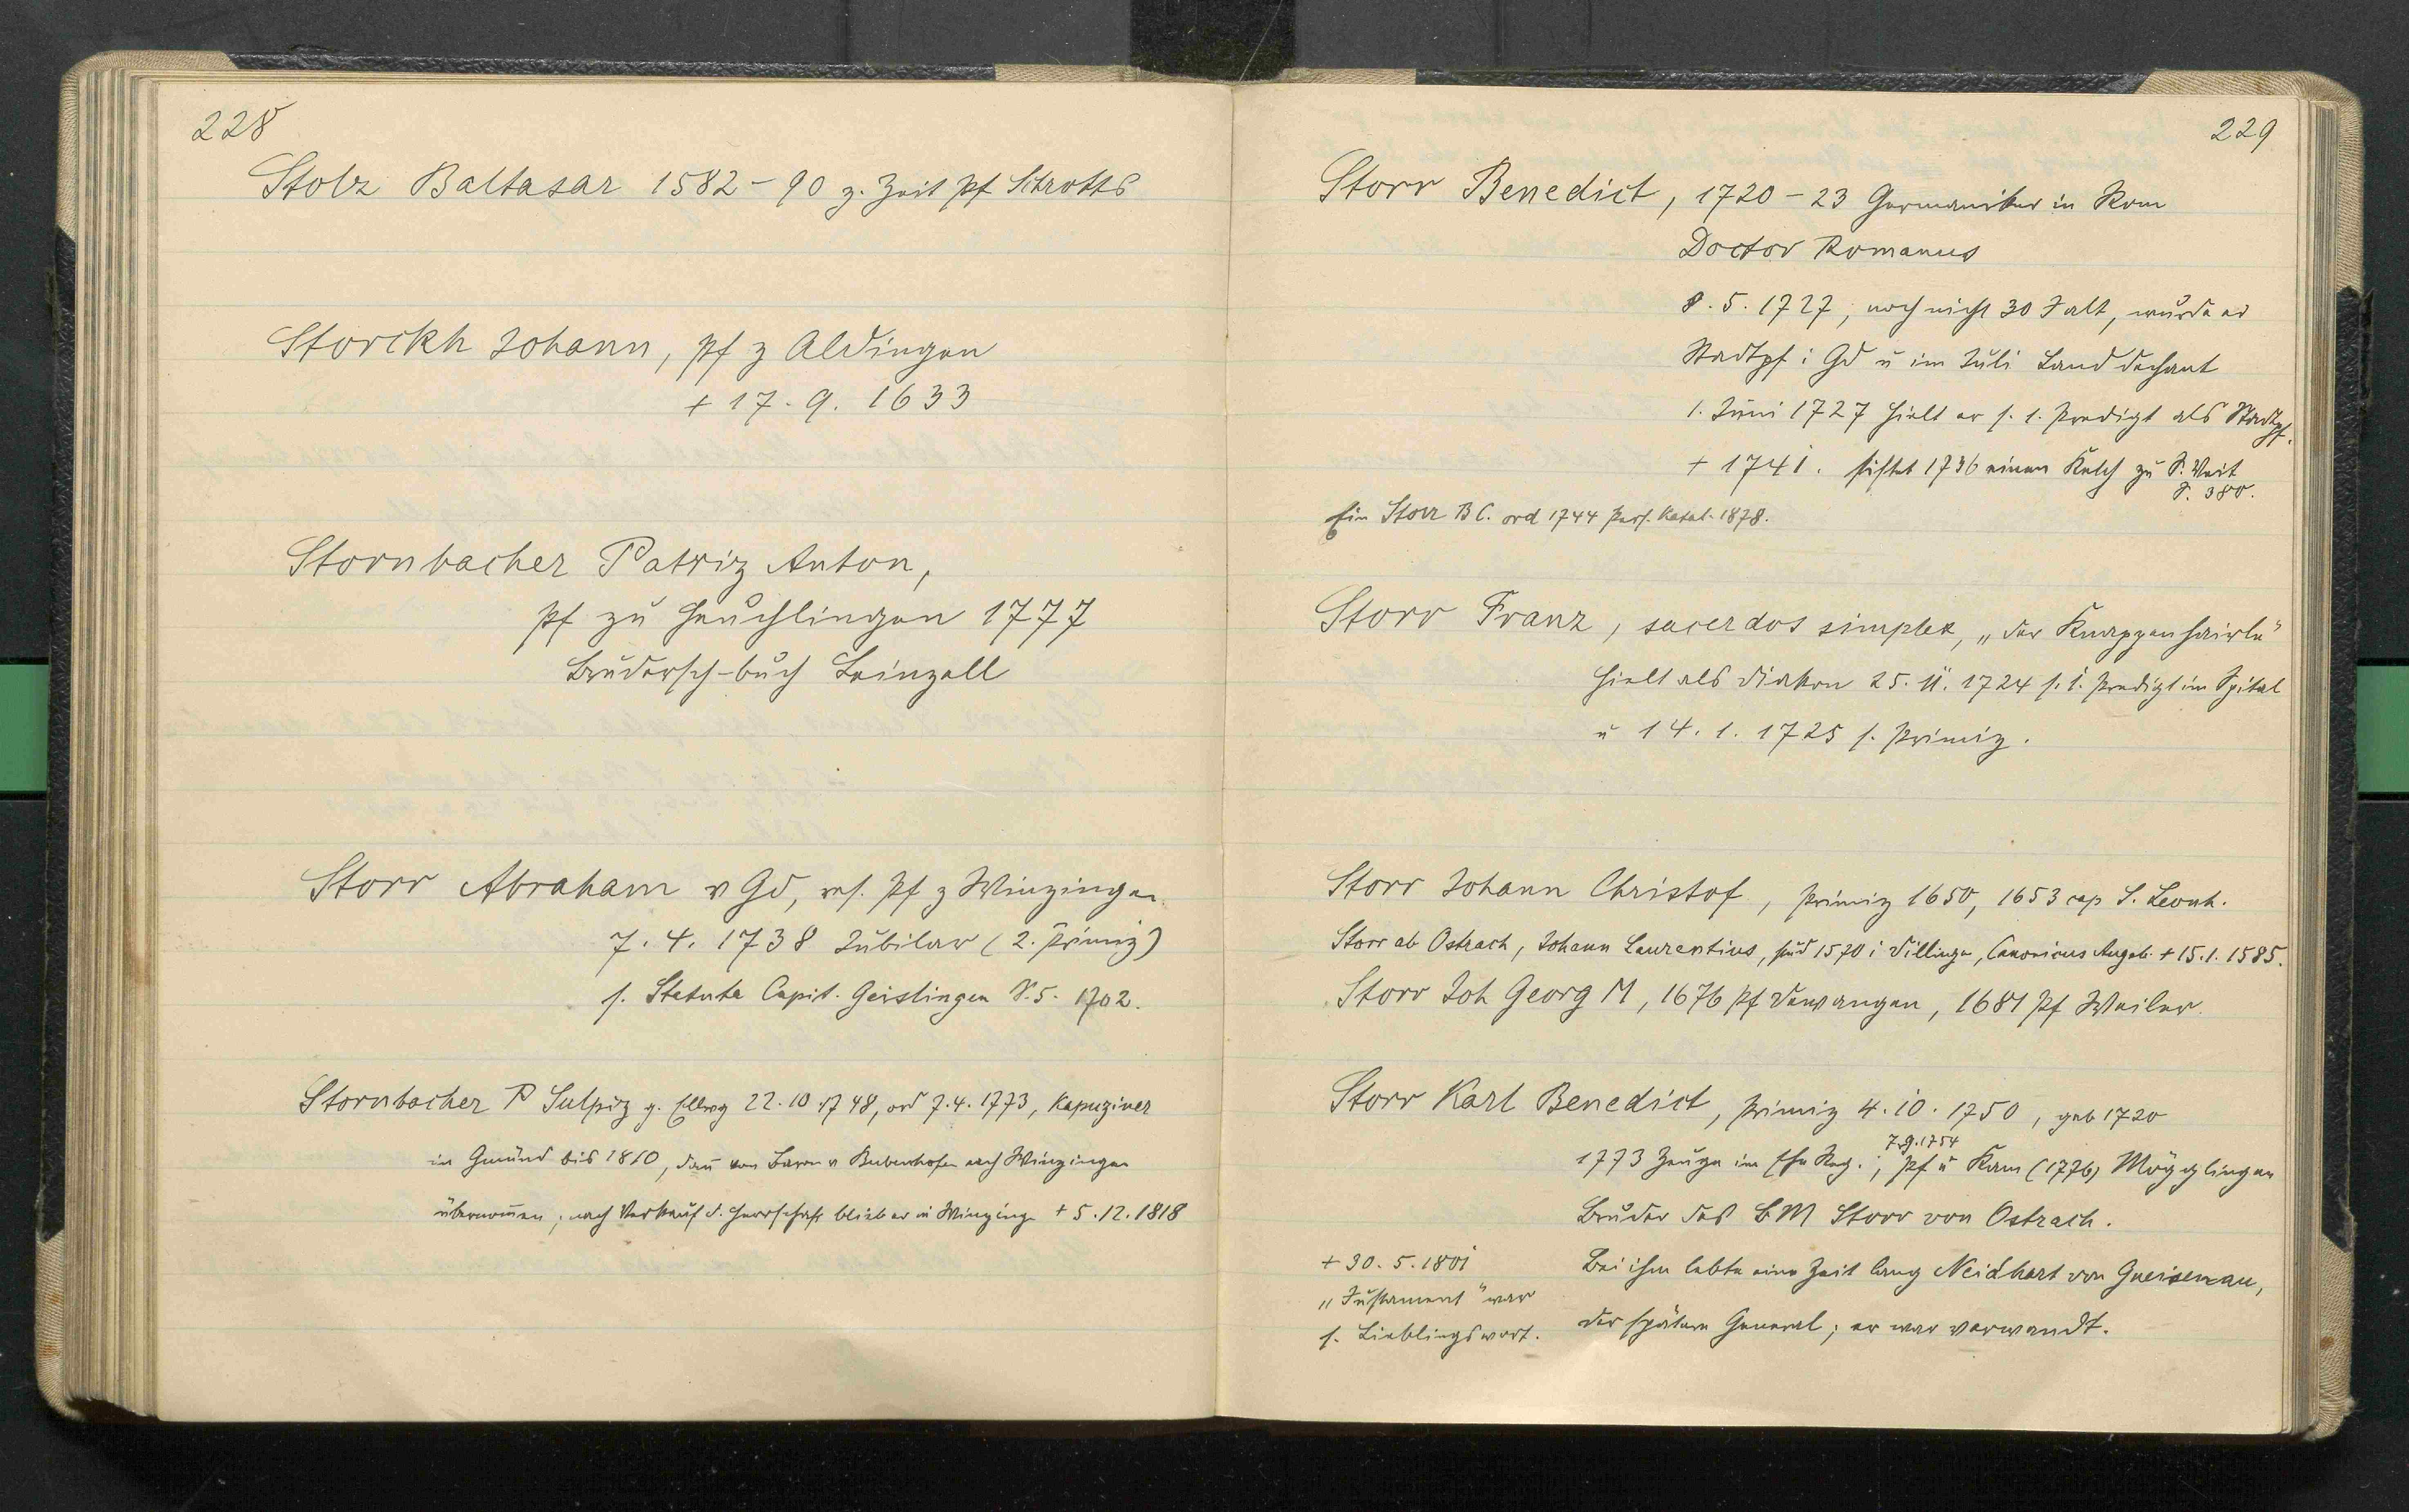 228
Stolz Baltasar 1582-90 z. Zeit Pf Strotts
Storckh Johann, Pf z Aldingen
+ 17.9. 1633
Stornbacher Patriz Anton,
Pf zu Heuchlingen 1777
Brudersch-buch Leinzell
Storr Abraham v Gd, res. Pf z Winzingen
7.4. 1738 Jubilar (2. Primiz)
s. Statuta Capit. Geislingen S. 5. 1702.
Stornbacher P Sulpiz g. Ellwg 22.10.1748, ord 7.4.1773, Kapuziner
in Gmünd bis 1810, dan̄ von Baron v Bubenhofen nach Winzingen
übernom̄en, nach Verkauf d. Herrschaft blieb er in Winzing. + 5.12.1818
229
Storr Benedict, 1720-23 Germaniker in Rom
Doctor Romanus
8.5.1727, noch nicht 30 J alt, wurde er
Stadtpf i Gd u im Juli Landdechant
1. Juni 1727 hielt er s. 1. Predigt als Stadtpf.
+ 1741. stiftet 1736 einen Kelch zu S. Veit
S. 380.
Ein Storr B C. ord 1744 Pers. Katal. 1878.
Storr Franz, sacerdos simplex, „der Knappenhairle"
hielt als Diakon 25.11.1724 s. 1. Predigt im Spital
u 14.1.1725 s. Primiz.
Storr Johann Christof, Primiz 1650, 1653 cap S. Leonh.
Storr ab Ostrach, Johann Laurentius, stud 1570 i Dillingen, Canonicus Augsb. + 15.1.1585.
Storr Joh Georg M, 1676 Pf Dewangen, 1681 Pf Weiler.
Storr Karl Benedict, Primiz 4.10.1750, geb 1720
7.9.1754
1773 Zeuge im Ehe Reg.; Pf u Kam (1776) Mögglingen
Bruder des BM Storr von Ostrach.
+ 30.5.1801
„Justament" war
s. Lieblingswort.
Bei ihm lebte eine Zeit lang Neidhart von Gneisenau,
der spätere General; er war verwandt.